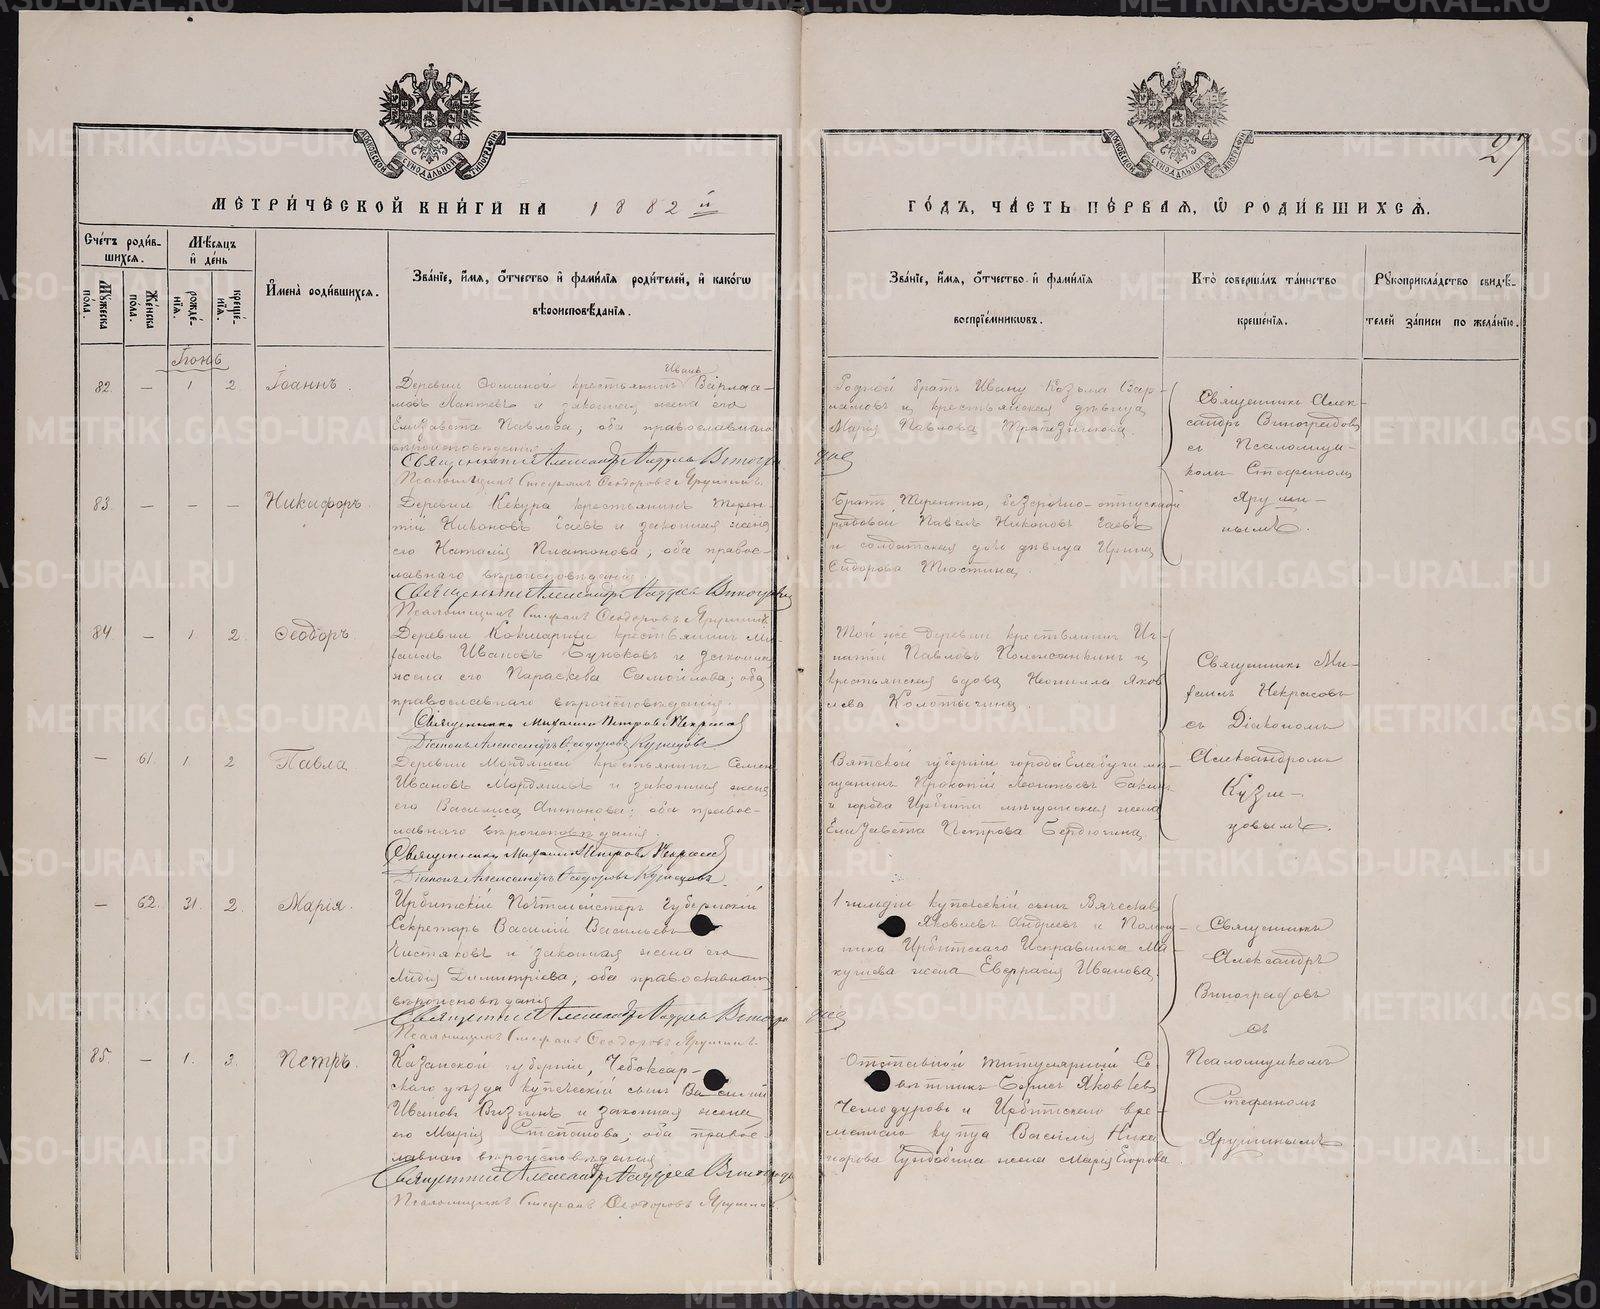 МЕТРИ́ЧЕСКОЙ КНИ́ГИ НА 1882 й
ГО́ДЪ, ЧА́СТЬ ПЕ́РВАЯ, Ѡ РОДИ́ВШИХСѦ.
27
Сче́тъ роди́в-
шихся.
Мѣ́сяцъ
и де́нь
Му́жеска
по́ла.
Же́нска
по́ла.
рожде́-
нїя.
креще́-
нїя.
И҆мена̀ роди́вшихся.
Зва́нїе, и҆́мя, ѻ҆́тчество и҆ фами́лїя роди́телей, и҆ како́гѡ
вѣроисповѣ́данїя.
Зва́нїе, и҆́мя, ѻ҆́тчество и҆ фами́лїя
воспрїе́мникѡвъ.
Кто̀ соверша́лъ та́инство
креще́нїя.
Рꙋкоприкла́дство свидѣ́-
телей за́писи по жела́нїю.
Іюнь
82. — 1 2 Іоаннъ.
Деревни крестьянинъ Иванъ Варлаа-
мовъ Лаптевъ и законная жена его
Елизавета Павлова, оба православнаго
вѣроисповѣданія
Священникъ Александръ Виноградовъ
Псаломщикъ Стефанъ Ѳеодоровъ Ярушинъ.
Родной братъ Ивану Козьма Вар-
ламовъ и крестьянская дѣвица
Марія Павлова Трапезникова.
Священникъ Алек-
сандръ Виноградовъ
съ Псаломщи-
комъ Стефаномъ
Яруши-
нымъ.
83. — — — Никифоръ.
Деревни Кекура крестьянинъ Терен-
тій Никоновъ Гаевъ и законная жена
его Наталія Платонова, оба правос-
лавнаго вѣроисповѣданія
Священникъ Александръ Виноградовъ
Псаломщикъ Стефанъ Ѳеодоровъ Ярушинъ
Братъ Терентію, безсрочно-отпускной
рядовой Павелъ Никоновъ Гаевъ
и солдатская дочь дѣвица Ирина
Сидорова
84. — 1. 2. Ѳеодоръ.
Деревни Кокшарихи крестьянинъ Ми-
хаилъ Ивановъ Буньковъ и законная
жена его Параскева Самойлова; оба
православнаго вѣроисповѣданія.
Священникъ Михаилъ Петровъ Некрасовъ
Діаконъ Александръ Ѳеодоровъ Кузнецовъ
Той же деревни крестьянинъ Иг-
натій Павловъ и
крестьянская вдова Неонилла Яков-
лева
Священникъ Ми-
хаилъ Некрасовъ
съ Діакономъ
Александромъ
Кузне-
цовымъ.
— 61. 1 2 Павла
Деревни Мордяшихи крестьянинъ Семенъ
Ивановъ Мордяшевъ и законная жена
его Василиса Антонова; оба правос-
лавнаго вѣроисповѣданія.
Священникъ Михаилъ Петровъ Некрасовъ
Діаконъ Александръ Ѳеодоровъ Кузнецовъ.
Вятской губерніи города Елабуги мѣ-
щанинъ Прокопій Леонтьевъ
и города Ирбити мѣщанская жена
Елизавета Петрова Бердюгина
— 62. 31. 2. Марія.
Ирбитскій Почтмейстеръ Губернскій
Секретарь Василій Васильевъ
Чистяковъ и законная жена его
Лидія Димитріева, оба православнаго
вѣроисповѣданія
Священникъ Александръ Виноградовъ
Псаломщикъ Стефанъ Ѳеодоровъ Ярушинъ.
1 гильдіи купеческій сынъ Вячеславъ
Яковлевъ Андреевъ и Помощ-
ника Ирбитскаго Исправника Ма-
кушева жена Евпраксія Иванова.
Священникъ
Александръ
Виноградовъ
съ
Псаломщикомъ
Стефаномъ
Ярушинымъ
85. — 1. 3. Петръ.
Казанской губерніи, Чебоксар-
скаго уѣзда купеческій сынъ Василій
Ивановъ и законная жена
его Марія Степанова; оба правос-
лавнаго вѣроисповѣданія
Священникъ Александръ Виноградовъ
Псаломщикъ Стефанъ Ѳеодоровъ Ярушинъ
Отставной титулярный Со-
вѣтникъ Борисъ Яковлевъ
Чемодуровъ и Ирбитскаго вре-
меннаго купца Василія Ника-
норова жена Марія Егорова
METRIKI.GASO-URAL.RU